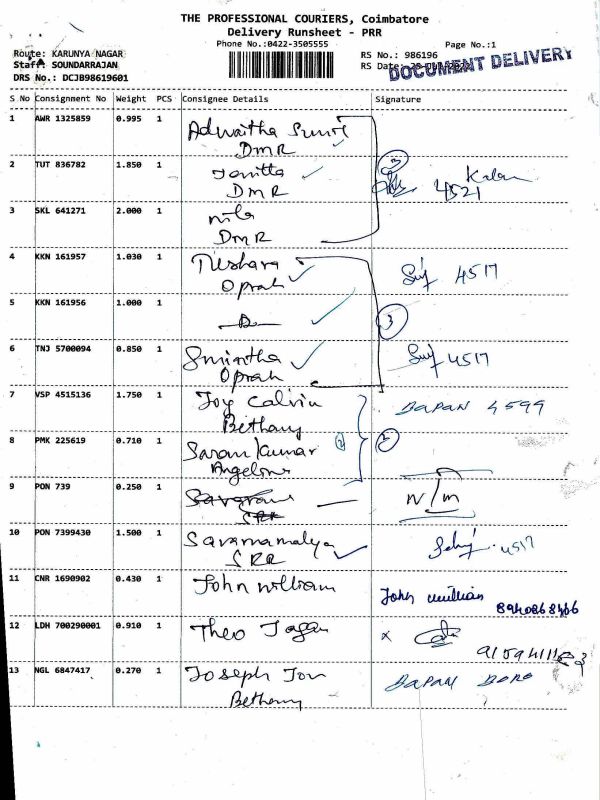 THE PROFESSIONAL COURIERS, Coimbatore
Delivery Runsheet - PRR
Phone No.:0422-3505555
Page No.:1
Route: KARUNYA NAGAR
RS No.: 986196
Staff: SOUNDARRAJAN
RS Date:
DOCUMENT DELIVERY
DRS No.: DCJB98619601
S No Consignment No Weight PCS Consignee Details Signature
1 AWR 1325859 0.995 1 Adwaitha
DMR
2 TUT 836782 1.850 1
DMR 4521
3 SKL 641271 2.000 1 nila
DMR
3
4 KKN 161957 1.030 1 Tushara 4517
Oprah
5 KKN 161956 1.000 1 3
6 TNJ 5700094 0.850 1 4517
Oprah
7 VSP 4515136 1.750 1 Joy Calvin BAPAN 4599
Bethany
8 PMK 225619 0.710 1 Saran Kumar 2
9 PON 739 0.250 1 N/m
10 PON 7399430 1.500 1 4517
SRR
11 CNR 1690902 0.430 1 John william John william
12 LDH 700290001 0.910 1 Theo Jagan x
13 NGL 6847417 0.270 1 Joseph Jon BAPAN
Bethany